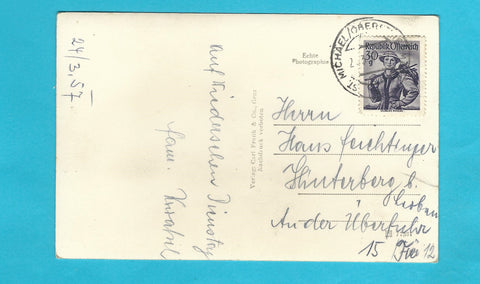 24/3.57.
auf Wiedersehen Dienstag
Fam.
Echte
Photographie
Verlag Carl Frank & Co., Graz
Nachdruck verboten
ST. MICHAEL
Republik Österreich
30 g
Herrn
Hans
Hinterberg b.
Leoben
An der Überfuhr
15
12